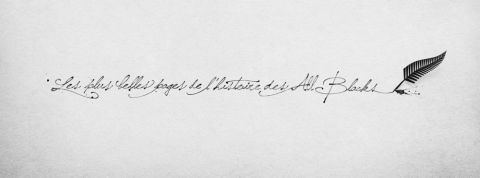 Les plus belles pages de l'histoire des All Blacks